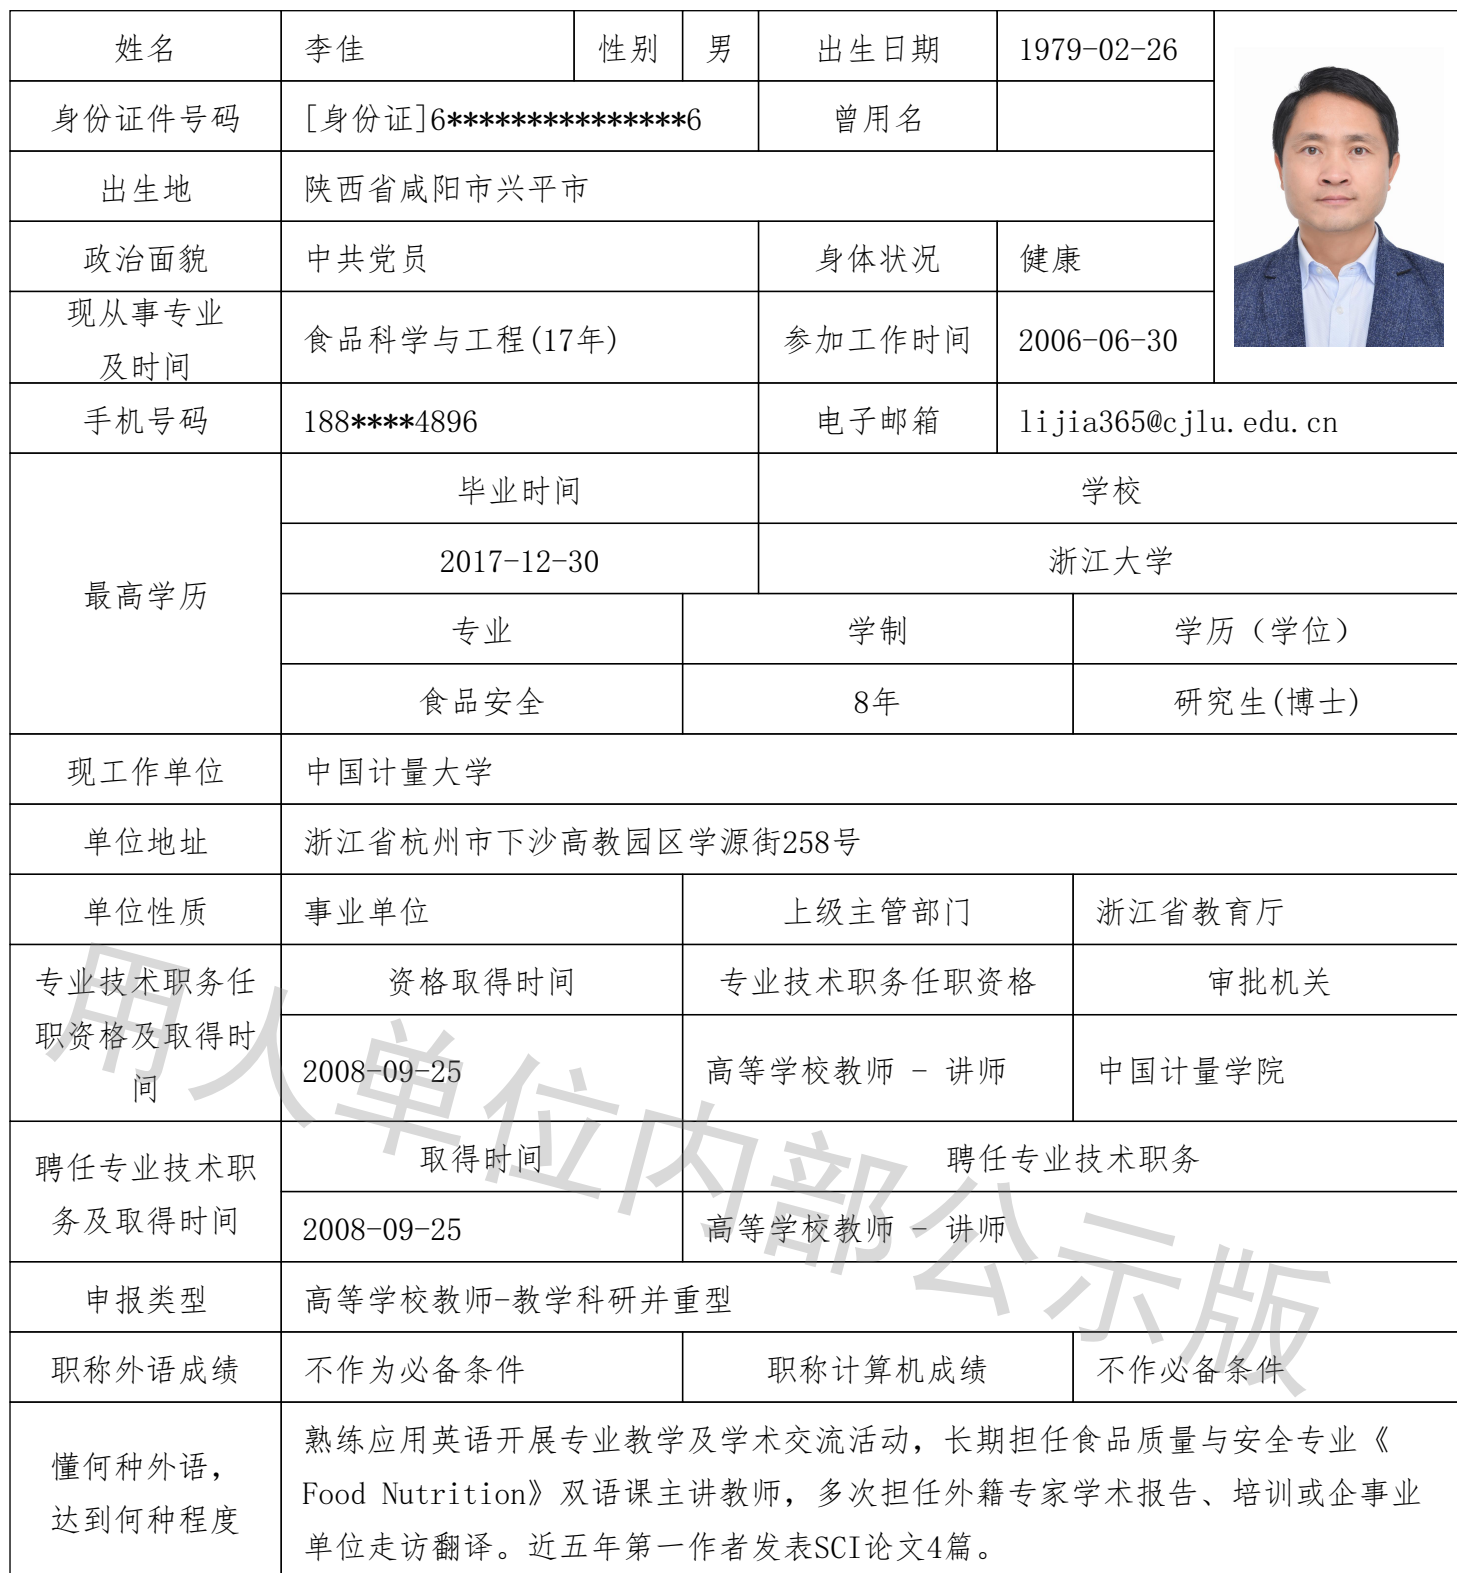 姓名 李佳 性别 男 出生日期 1979-02-26
身份证件号码 [身份证]6***************6 曾用名
出生地 陕西省咸阳市兴平市
政治面貌 中共党员 身体状况 健康
现从事专业
及时间 食品科学与工程(17年) 参加工作时间 2006-06-30
手机号码 188****4896 电子邮箱 lijia365@cjlu.edu.cn
最高学历
毕业时间 学校
2017-12-30 浙江大学
专业 学制 学历（学位）
食品安全 8年 研究生(博士)
现工作单位 中国计量大学
单位地址 浙江省杭州市下沙高教园区学源街258号
单位性质 事业单位 上级主管部门 浙江省教育厅
专业技术职务任
职资格及取得时
间
资格取得时间 专业技术职务任职资格 审批机关
2008-09-25 高等学校教师 - 讲师 中国计量学院
聘任专业技术职
务及取得时间
取得时间 聘任专业技术职务
2008-09-25 高等学校教师 - 讲师
申报类型 高等学校教师-教学科研并重型
职称外语成绩 不作为必备条件 职称计算机成绩 不作必备条件
懂何种外语，
达到何种程度
熟练应用英语开展专业教学及学术交流活动，长期担任食品质量与安全专业《
Food Nutrition》双语课主讲教师，多次担任外籍专家学术报告、培训或企事业
单位走访翻译。近五年第一作者发表SCI论文4篇。
用人单位内部公示版